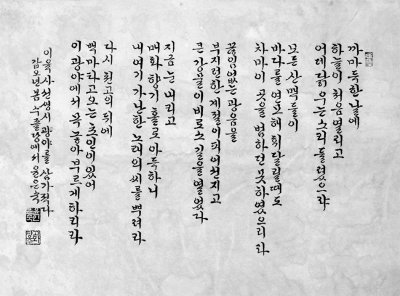 까마득한 날에
하늘이 처음 열리고
어데 닭 우는 소리 들렸으랴
모든 산맥들이
바다를 연모해 휘달릴 때도
차마 이 곳을 범하던 못하였으리라
끊임없는 광음을
부지런한 계절이 피어선 지고
큰 강물이 비로소 길을 열었다
지금 눈 나리고
매화 향기 홀로 아득하니
내 여기 가난한 노래의 씨를 뿌려라
다시 천고의 뒤에
백마 타고 오는 초인이 있어
이 광야에서 목 놓아 부르게 하리라
이육사 선생 시 광야를 삼가 적다
갑오년 봄